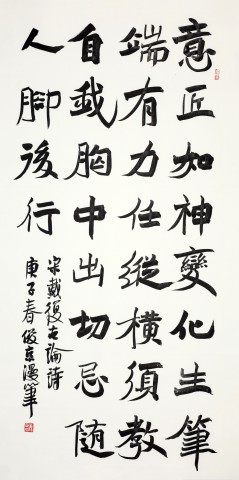 意匠如神變化生筆
端有力任縱橫須教
自我胸中出切忌随
人腳後行
宋戴復古論詩
庚子春俊京漫筆